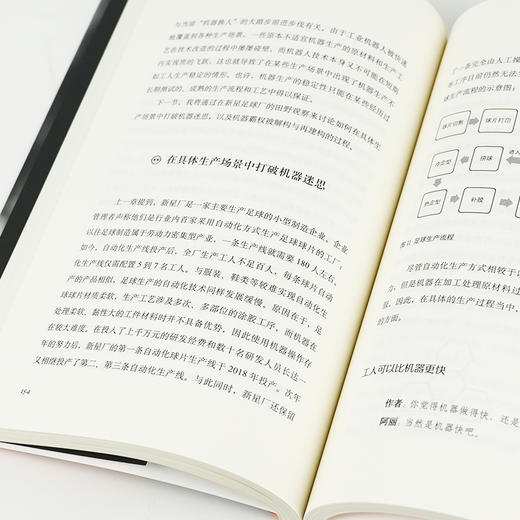 与当前“机器换人”的大踏步前进步伐有关，由于工业机器人被快速
地覆盖到各种生产场景，一些原本不适宜机器生产的原材料和生产工
艺在技术改造的过程中屡屡碰壁。而机器人技术本身又不可能在短期
内实现质的飞跃，这也就导致了在某些生产场景中出现了机器生产不
如工人生产稳定的情形。也许，机器生产的稳定性只能在某些经历过
长期测试的、成熟的生产流程和工艺中得以保证。
下一节，我将通过在新星足球厂的田野观察来讨论如何在具体生
产场景中打破机器迷思，以及机器霸权被解构与再建构的过程。
在具体生产场景中打破机器迷思
上一章提到，新星厂是一家主要生产足球的小型制造企业。企业
管理者声称他们是行业内首家采用自动化方式生产足球球片的工厂：
以往足球制造属于劳动力密集型产业，一条生产线就需要 180 人左右，
如今，自动化生产线投产后，全厂生产工人不足百人，每条球片自动
化生产线仅需配置 5 到 7 名工人。与服装、鞋类等较难实现自动化生
产的产品相似，足球生产的自动化技术同样发展缓慢。原因在于，足
球球片材质柔软，生产工艺涉及多次、多部位的涂胶工序，而机器在
处理柔软、黏性大的工件材料时并不具备优势，因此使用机器操作存
在较大难度。在投入了上千万元的研发经费和数十名研发人员长达一
年的努力后，新星厂的第一条自动化球片生产线于 2018 年投产。次年
又相继投产了第二、第三条自动化生产线。与此同时，新星厂还保留
154
了一条完全由人工操
些工序目前仍然无法
球生产流程的示意图；
球片切割
球片打印
冷定型
绕球
热定型
补胶
图11 足球生产流程
尽管自动化生产方式相较于
但是机器在加工处理原材料过
因此，在具体的生产过程当中，
的方面。
工人可以比机器更快
作者：你觉得机器做得快，还是
阿丽：当然是机器快吧。